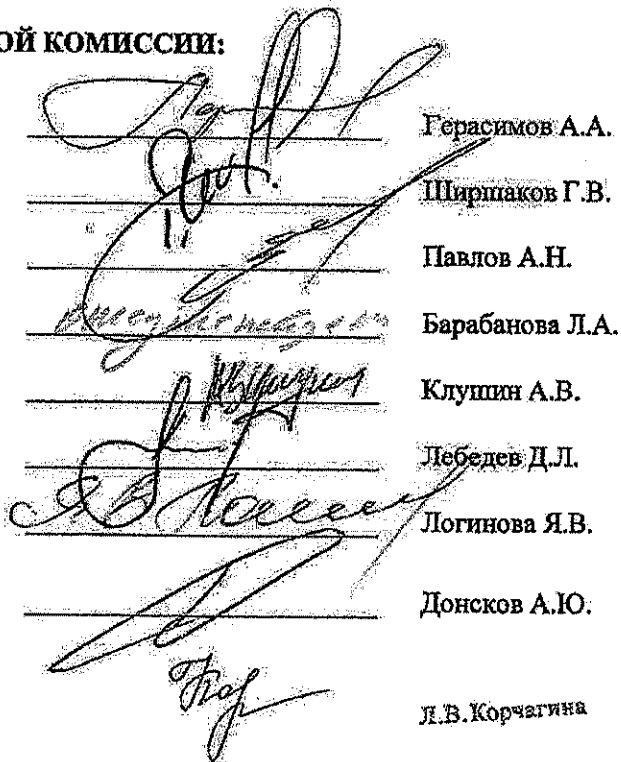 ОЙ КОМИССИИ:
Герасимов А.А.
Ширшаков Г.В.
Павлов А.Н.
Барабанова Л.А.
Клушин А.В.
Лебедев Д.Л.
Логинова Я.В.
Донсков А.Ю.
Л.В.Корчагина